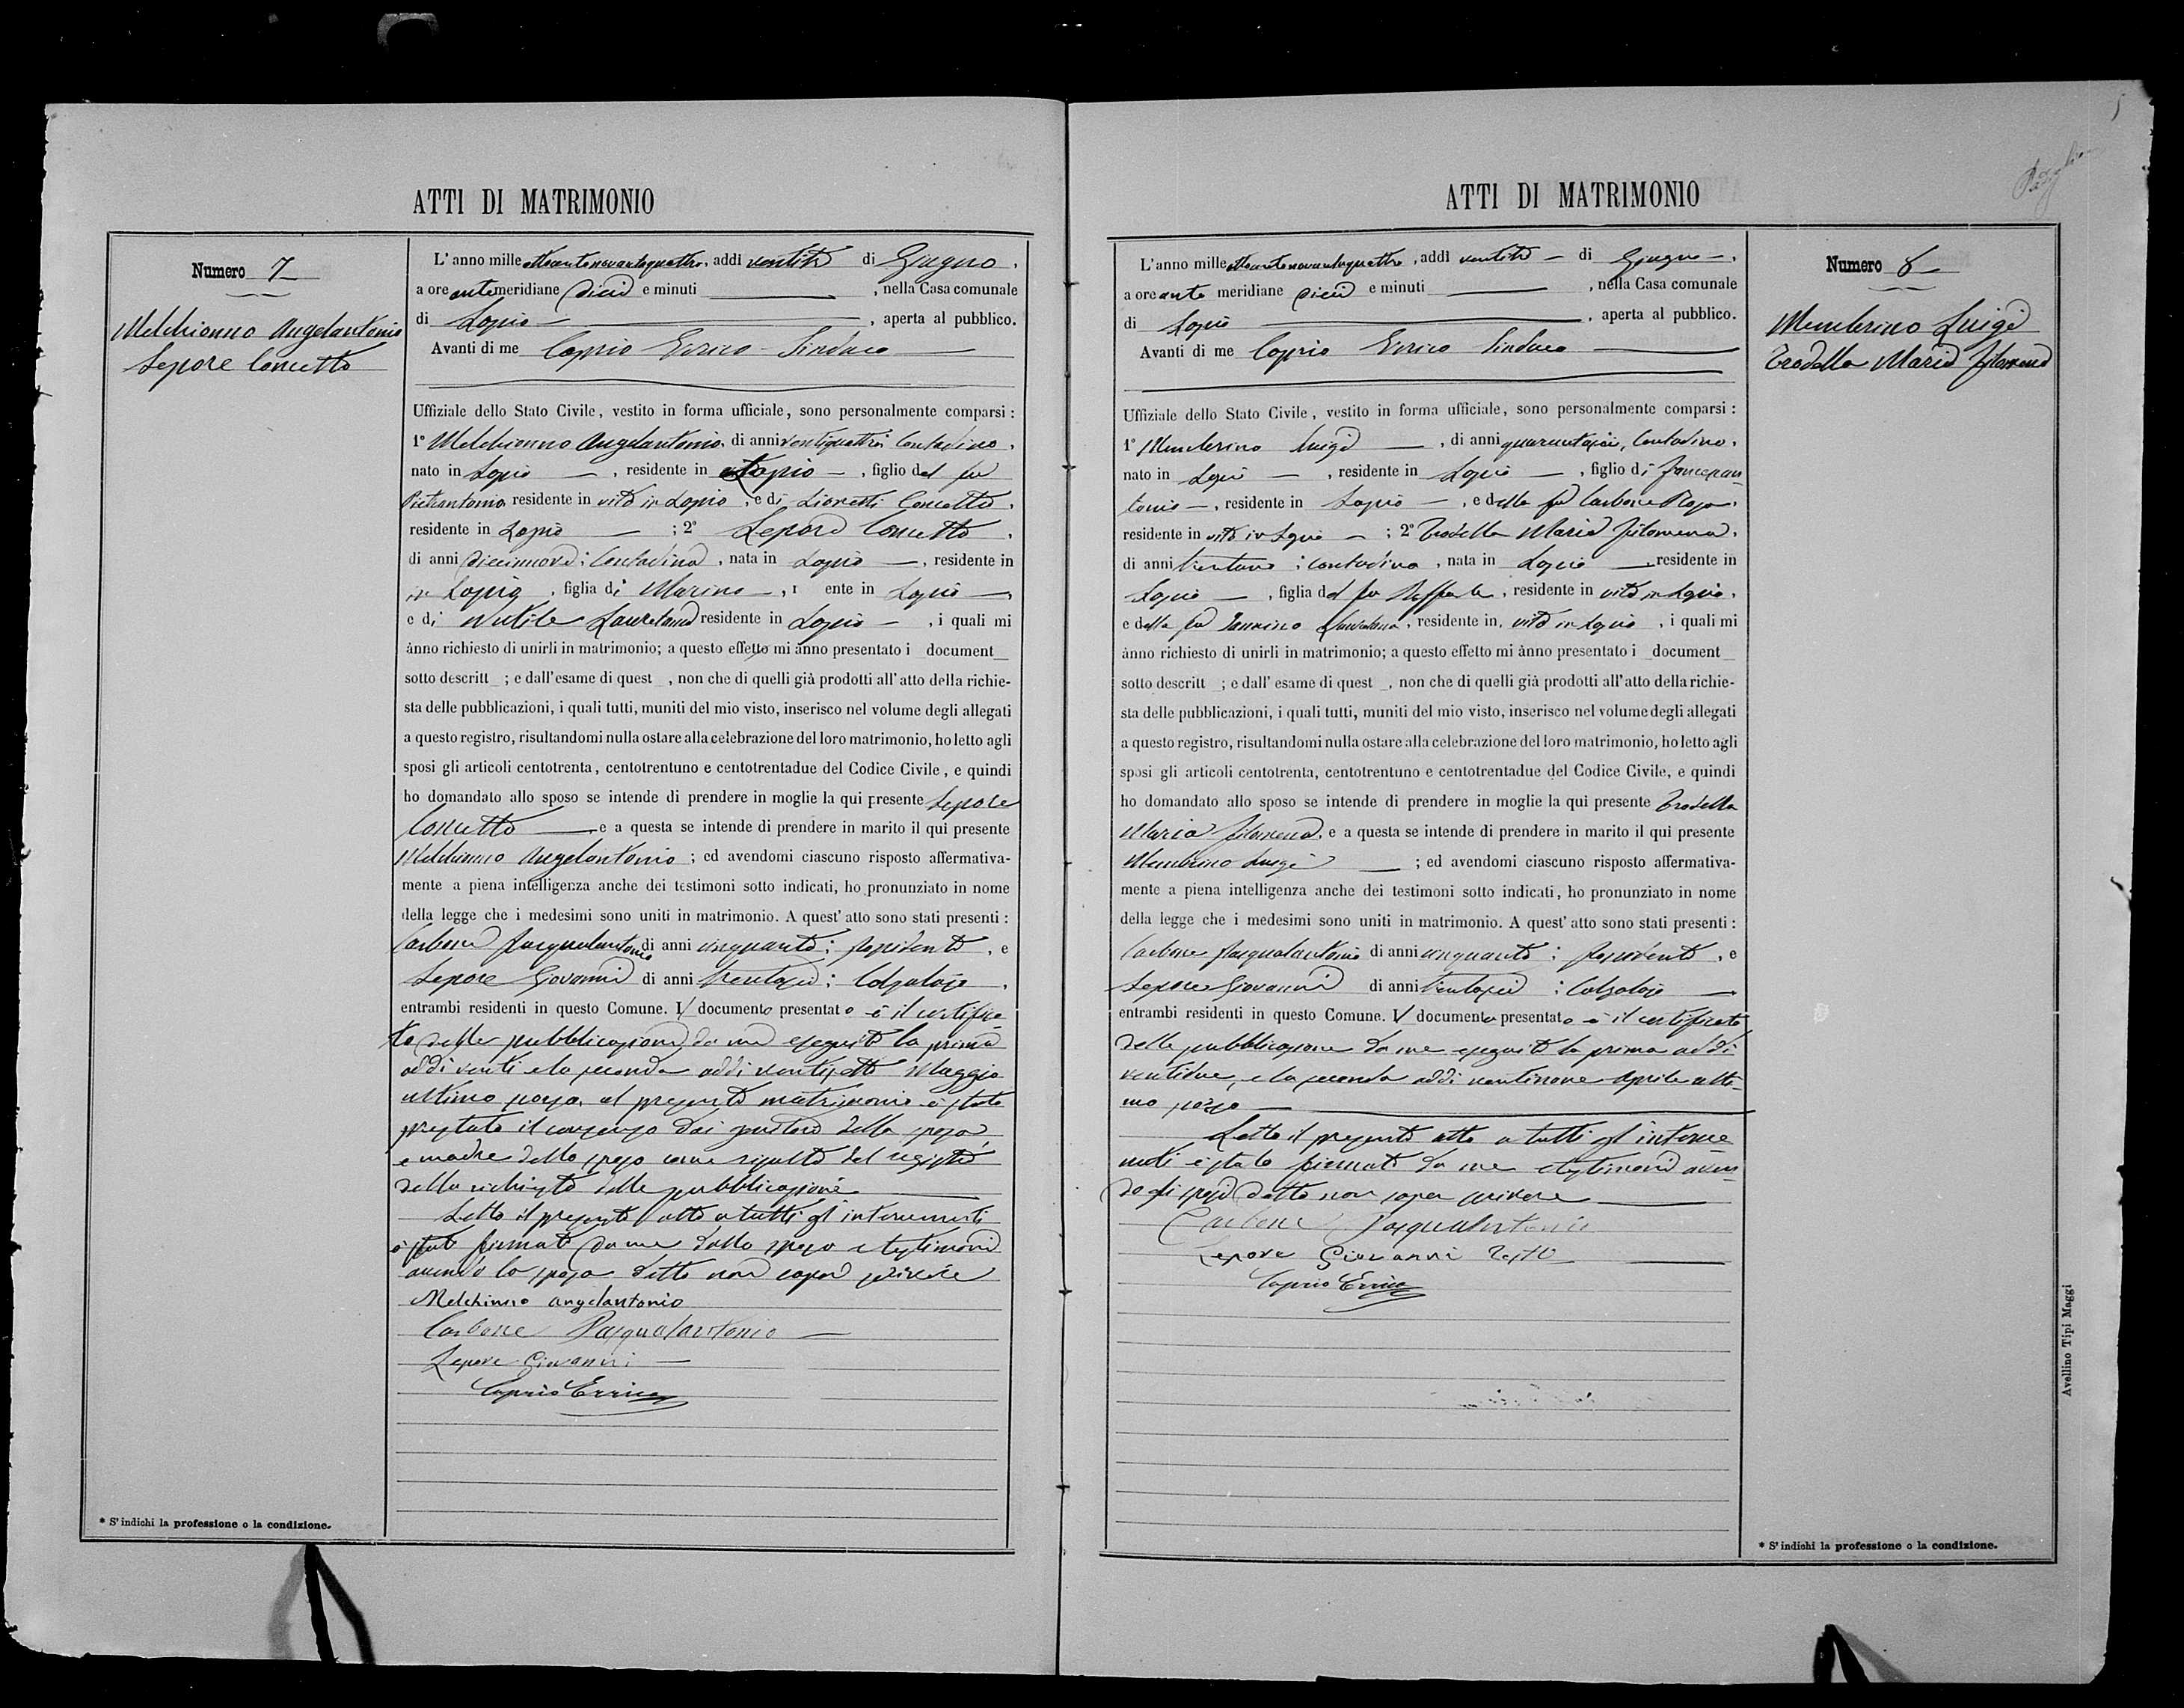 ATTI DI MATRIMONIO
Numero 7
Melchionno Angelantonio
Lepore Concetta
L'anno mille ottocentonovantaquattro, addì ventitre di Giugno,
a ore antemeridiane dieci e minuti , nella Casa comunale
di Lapio , aperta al pubblico.
Avanti di me Caprio Errico Sindaco
Uffiziale dello Stato Civile, vestito in forma ufficiale, sono personalmente comparsi:
1° Melchionno Angelantonio, di anni ventiquattro, Contadino,
nato in Lapio , residente in Lapio , figlio del fu
Pietrantonio, residente in vita in Lapio, e di Lioretti Concetta,
residente in Lapio ; 2° Lepore Concetta,
di anni diecinnove; Contadina, nata in Lapio , residente in
in Lapio, figlia di Marino , r ente in Lapio ,
e di Nutile Lauretana residente in Lapio , i quali mi
ànno richiesto di unirli in matrimonio; a questo effetto mi ànno presentato i document
sotto descritt ; e dall'esame di quest , non che di quelli già prodotti all'atto della richie-
sta delle pubblicazioni, i quali tutti, muniti del mio visto, inserisco nel volume degli allegati
a questo registro, risultandomi nulla ostare alla celebrazione del loro matrimonio, ho letto agli
sposi gli articoli centotrenta, centotrentuno e centotrentadue del Codice Civile, e quindi
ho domandato allo sposo se intende di prendere in moglie la qui presente Lepore
Concetta e a questa se intende di prendere in marito il qui presente
Melchionno Angelantonio; ed avendomi ciascuno risposto affermativa-
mente a piena intelligenza anche dei testimoni sotto indicati, ho pronunziato in nome
della legge che i medesimi sono uniti in matrimonio. A quest'atto sono stati presenti:
Carbone Pasqualantonio di anni cinquanta; possidente, e
Lepore Giovanni di anni trentasei; Calzolajo,
entrambi residenti in questo Comune. Il documento presentato è il certifica
to delle pubblicazioni da me eseguite la prima
addì venti e la seconda addì ventisette Maggio
ultimo passo. al presente matrimonio è stato
prestato il consenso dai genitori della sposa,
e madre dello sposo come risulta dal registro
della richiesta delle pubblicazioni
Letto il presente atto a tutti gl'intervenuti
è stato firmato da me dallo sposo e testimoni
avendo la sposa detto non saper scrivere
Melchinno angelantonio
Carbone Pasqualantonio
Lepore Giovanni
Caprio Errico
* S'indichi la professione o la condizione.
ATTI DI MATRIMONIO
Numero 8
Membrino Luigi
Trodella Maria Filomena
L'anno mille ottocentonovantaquattro, addì ventitre di Giugno,
a ore ante meridiane dieci e minuti , nella Casa comunale
di Lapio , aperta al pubblico.
Avanti di me Caprio Errico Sindaco
Uffiziale dello Stato Civile, vestito in forma ufficiale, sono personalmente comparsi:
1° Membrino Luigi , di anni quarantasei, Contadino,
nato in Lapio , residente in Lapio , figlio di Francescan
tonio , residente in Lapio , e della fu Carbone Rosa,
residente in vita in Lapio ; 2° Trodella Maria Filomena,
di anni trentuno; contadina, nata in Lapio , residente in
Lapio , figlia del fu Raffaele, residente in vita in Lapio,
e della fu Iannino Lauretana, residente in vita in Lapio, i quali mi
ànno richiesto di unirli in matrimonio; a questo effetto mi ànno presentato i document
sotto descritt ; e dall'esame di quest , non che di quelli già prodotti all'atto della richie-
sta delle pubblicazioni, i quali tutti, muniti del mio visto, inserisco nel volume degli allegati
a questo registro, risultandomi nulla ostare alla celebrazione del loro matrimonio, ho letto agli
sposi gli articoli centotrenta, centotrentuno e centotrentadue del Codice Civile, e quindi
ho domandato allo sposo se intende di prendere in moglie la qui presente Trodella
Maria Filomena, e a questa se intende di prendere in marito il qui presente
Membrino Luigi ; ed avendomi ciascuno risposto affermativa-
mente a piena intelligenza anche dei testimoni sotto indicati, ho pronunziato in nome
della legge che i medesimi sono uniti in matrimonio. A quest'atto sono stati presenti:
Carbone Pasqualantonio di anni cinquanta; possidente, e
Lepore Giovanni di anni trentasei; Calzolajo
entrambi residenti in questo Comune. Il documento presentato è il certificato
delle pubblicazione da me eseguite la prima addì
ventidue, e la seconda addì ventinove Aprile ulti-
mo passo
Letto il presente atto a tutti gl'interve
nuti è stato firmato da me e testimoni aven-
do gli sposi detto non saper scrivere
Carbone Pasqualantonio
Lepore Giovanni Teste
Caprio Errico
* S'indichi la professione o la condizione.
Avellino Tipi Maggi